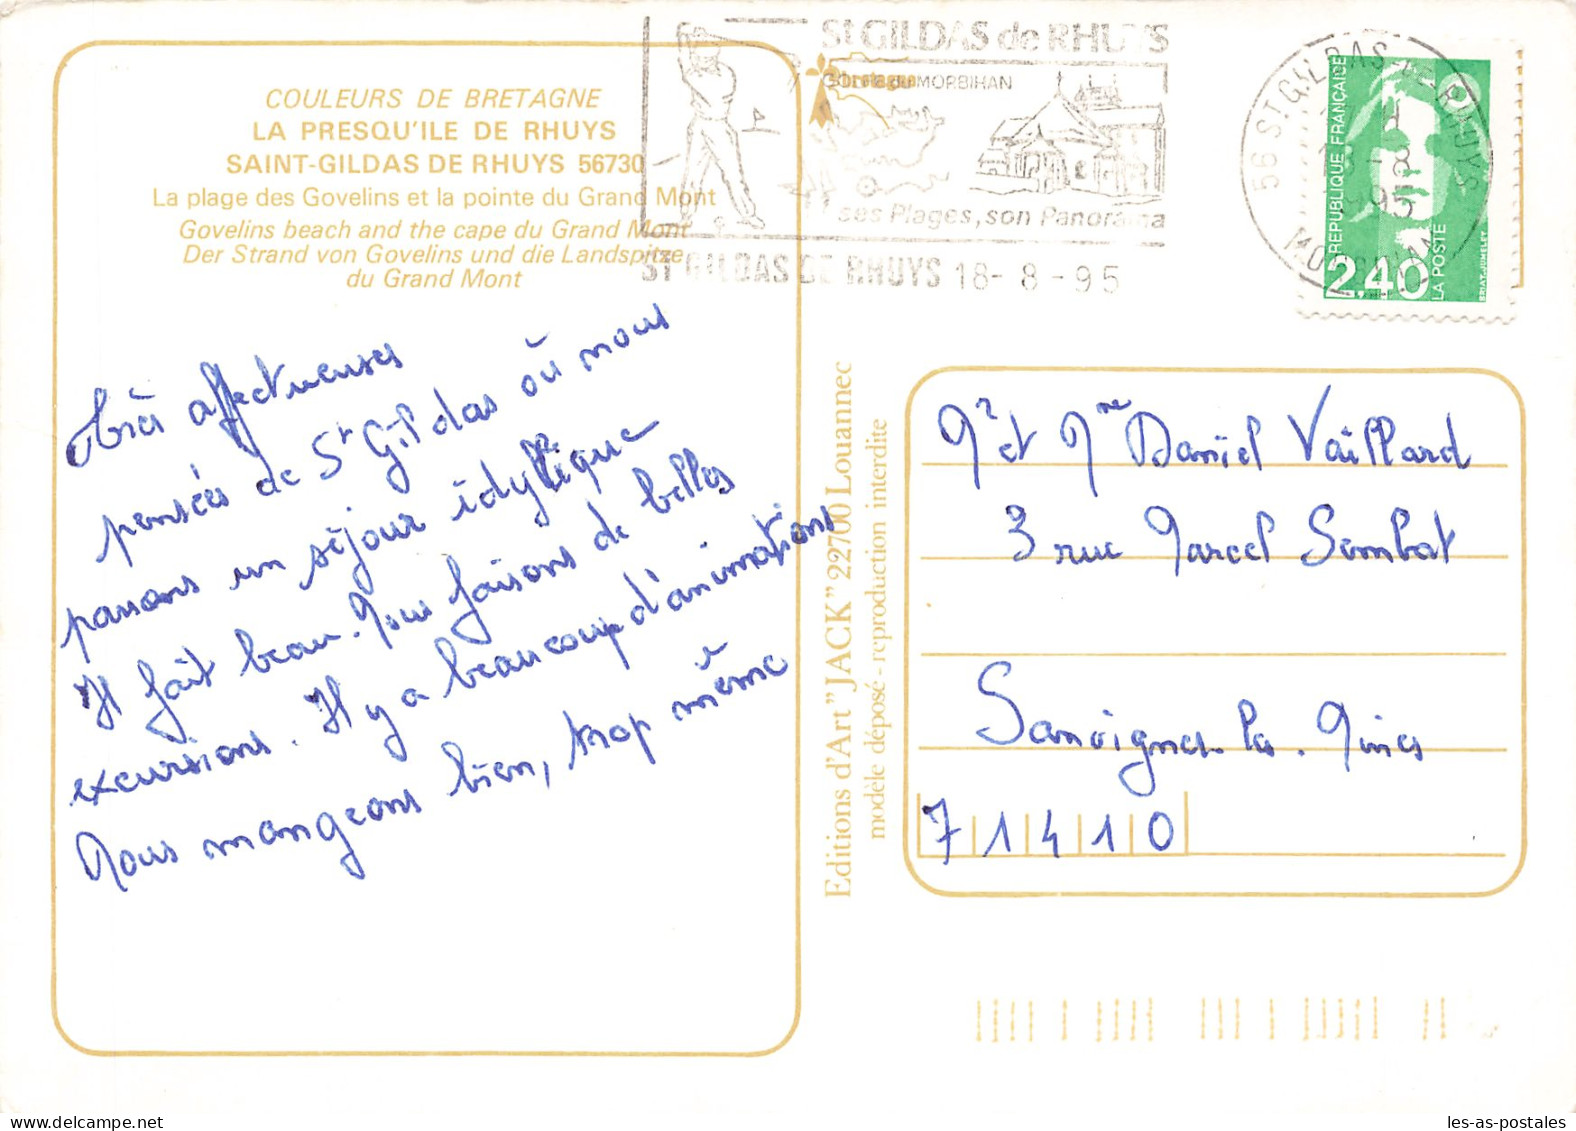 COULEURS DE BRETAGNE
LA PRESQU'ILE DE RHUYS
SAINT-GILDAS DE RHUYS 56730
La plage des Govelins et la pointe du Grand Mont
Govelins beach and the cape du Grand Mont
Der Strand von Govelins und die Landspitze
du Grand Mont
St GILDAS de RHUYS
GOLFE DU MORBIHAN
ses Plages, son Panorama
ST GILDAS DE RHUYS 18-8-95
56 ST GILDAS DE RHUYS
18-8
1995
MORBIHAN
REPUBLIQUE FRANÇAISE
2,40
LA POSTE
BRIAT.JUMELET
Très affectueuses
pensées de St Gildas où nous
passons un séjour idyllique
Il fait beau. Nous faisons de belles
excursions. Il y a beaucoup d'animations
Nous mangeons bien, trop même
Editions d'Art "JACK" 22700 Louannec
modèle déposé - reproduction interdite
Mr et Mme Daniel Vaillard
3 rue Marcel Sembat
Sanvignes les Mines
71410
les-as-postales
delcampe.net